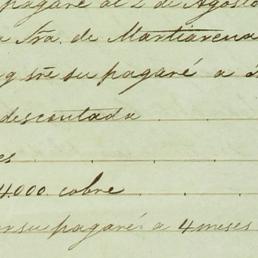 pagaré al 2 de Agosto
a Sra. de Martiarena
su pagaré a
descontada
es
4.000 cobre
su pagaré a 4 meses